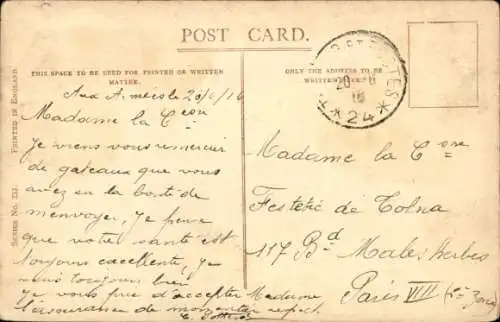 POST CARD.
THIS SPACE TO BE USED FOR PRINTED OR WRITTEN
MATTER.
ONLY THE ADDRESS TO BE
PRINTED IN ENGLAND.
SERIES No.
20
16
*24*
20/6/16
Madame la Cesse
Je viens vous remercier
de gateaux que vous
avez eu la bonté de
m'envoyer, Je pense
que votre santé est
toujours excellente, je
vais toujours bien
Je vous prie d'accepter Madame
l'assurance de mon
Madame la Csse
Festetic de Tolna
117 Bd Malesherbes
Paris VIII